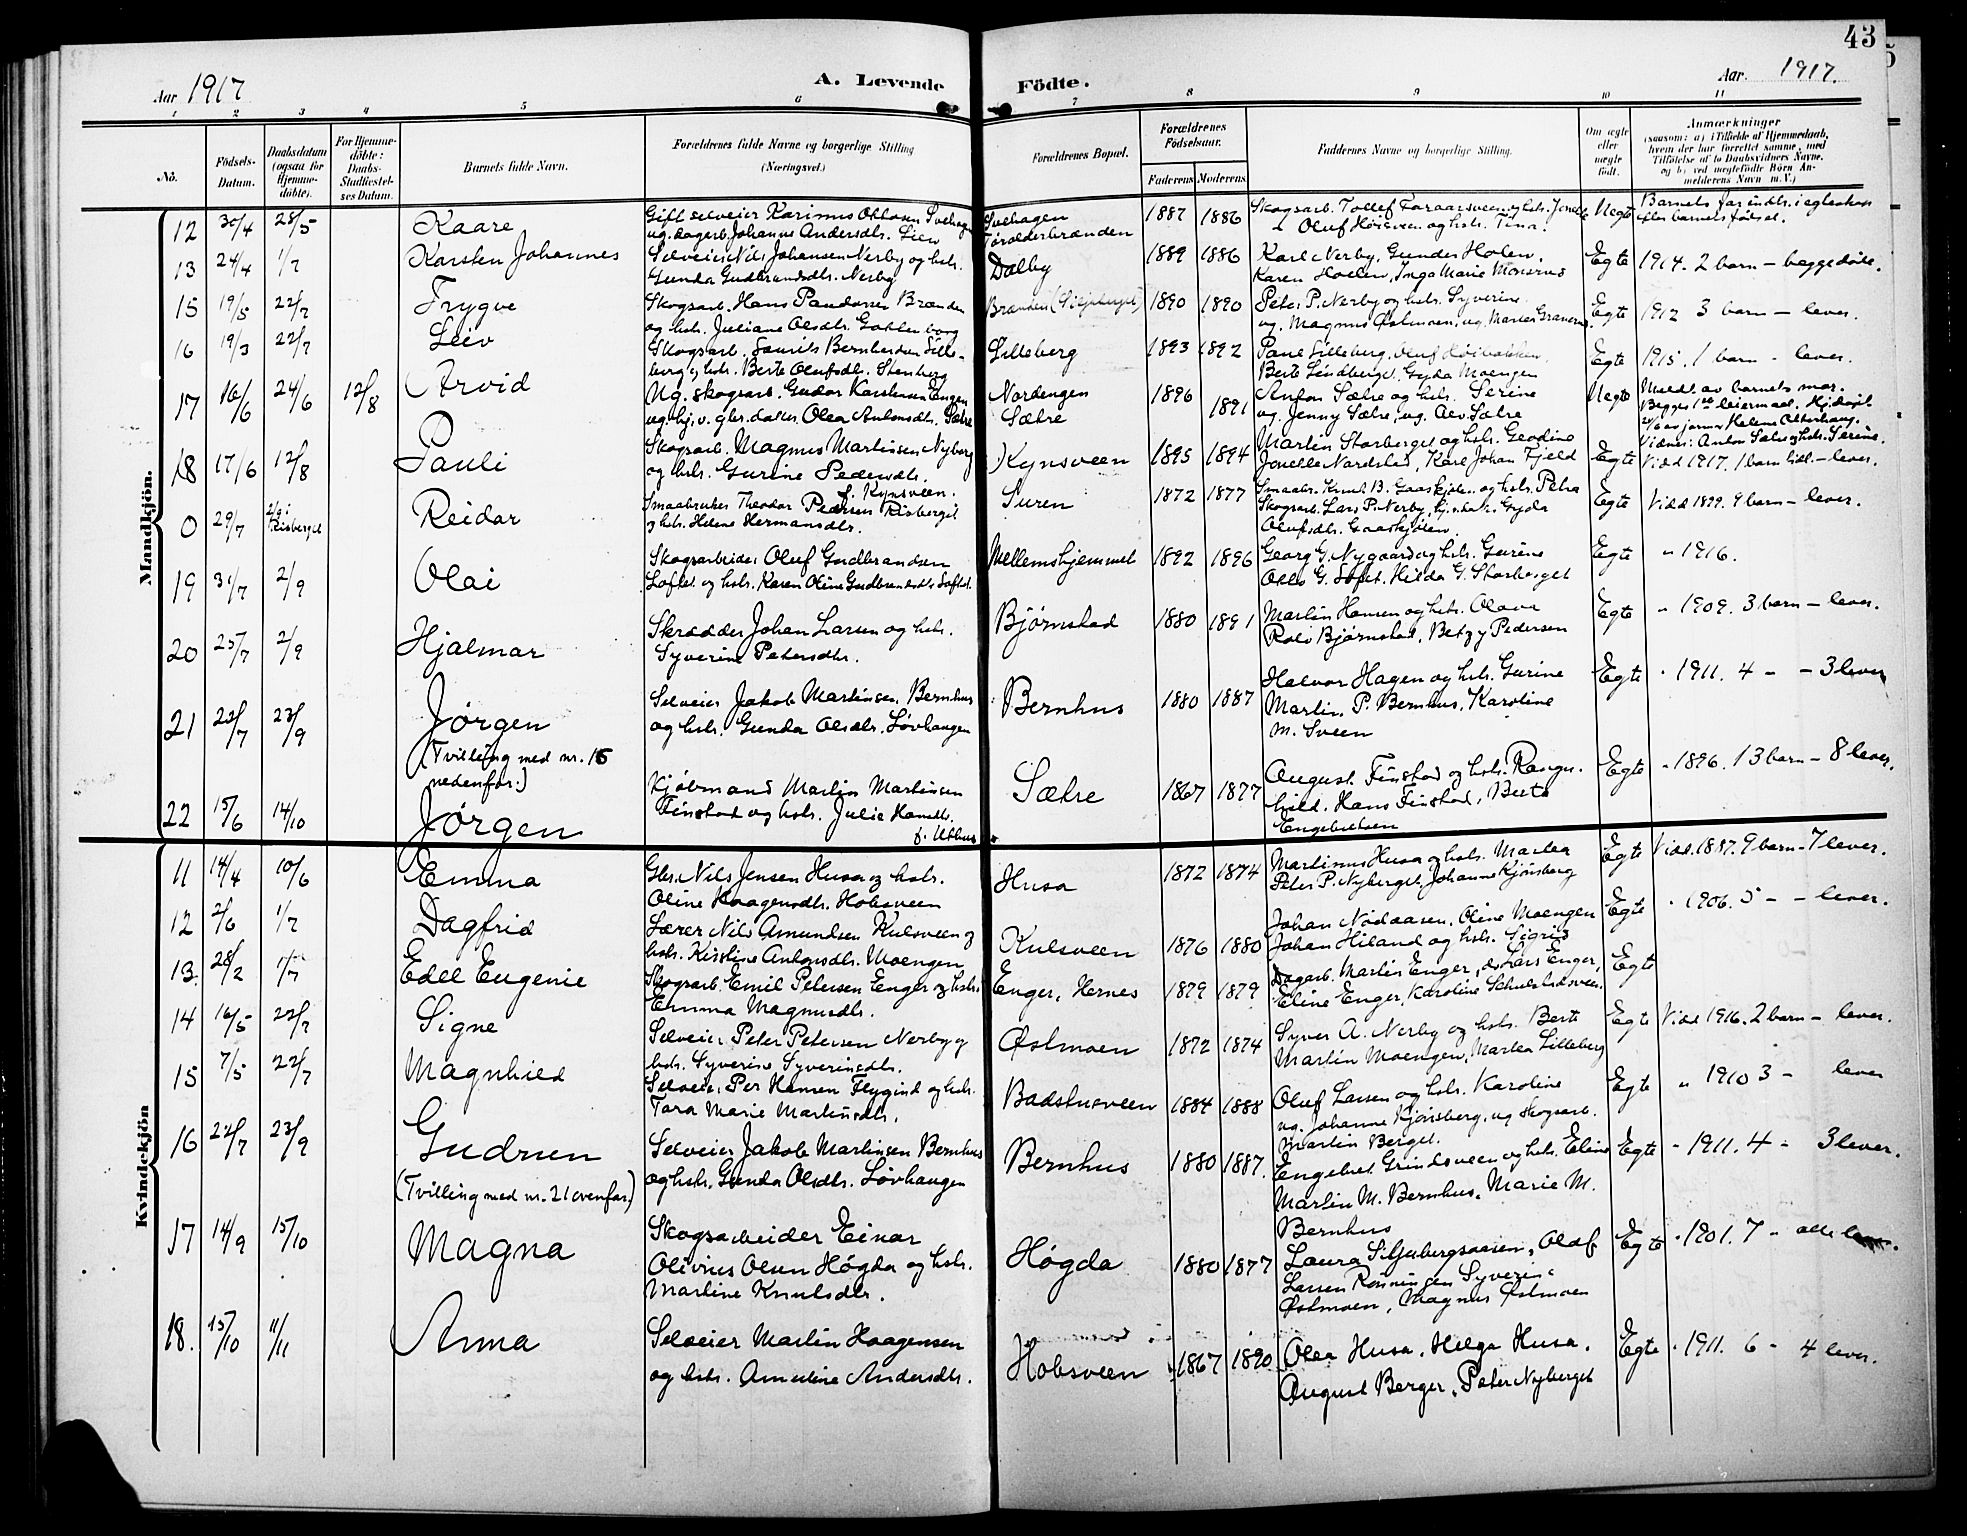 43
Aar 1917
A. Levende Födte.
Aar. 1917.
1 2 3 4 5 6 7 8 9 10 11
No.
Födsels-
Datum.
Daabsdatum
(ogsaa for
Hjemme-
döbte).
For Hjemme-
döbte:
Daabs-
Stadfæstel-
ses Datum.
Barnets fulde Navn.
Forældrenes fulde Navne og borgerlige Stilling
(Næringsvei.)
Forældrenes Bopæl.
Forældrenes
Födselsaar.
Faderens Moderens.
Faddernes Navne og borgerlige Stilling.
Om ægte
eller
uægte
födt.
Anmærkninger
(saasom: a) i Tilfælde af Hjemmedaab,
hvem der har forrettet samme, med
Tilföielse af to Daabsvidners Navne,
og b) ved uægtefödte Börn An-
melderens Navn m. V.)
Mandkjön.
12 30/4 28/5 Kaare
Gift selveier Karinus
ug. Johanne Andersdtr. Lien
Svehagen
1887 1886
Uegte
Barnets far indtr. i egteskab
efter barnets fødsel.
13 24/4 1/7 Karsten Johannes
Selveier Nils Johansen Nerby og hstr.
Gunda Gudbrandsdtr. Nerby
Dalby
1889 1886
Karl Nerby, Gunder Holen,
Karen Holen, Inga Marie Monsrus
Egte
1914. 2 barn - begge døde.
15 19/5 22/7 Trygve
Skogsarb. Hans Brænden
og hstr. Juliane Olsdtr.
Brænden
1890 1890
Peter P. Nerby og hstr. Syverine
ug. Magnus Østmoen, ug. Marie
Egte
1912 3 barn - lever.
16 19/3 22/7 Leiv
Skogsarb. Laurits Bernhardsen Lille-
berg og hstr. Berte Olufsdtr. Stenberg
Lilleberg
1893 1892
Paul Lilleberg, Oluf
Berte Lindberget, Gyda Moengen
Egte
1915. 1 barn - lever.
17 16/6 24/6 12/8 Arvid
Ug. skogsarb. Gudor Karstensen Engen
ug. hj. v. gbr. datter Olea Antonsdtr. Sætre
Nordengen
Sætre
1896
1891
Anton Sætre og hstr. Serine
ug. Jenny Sætre, ug. Alv. Sætre
Uegte
Meldt av barnets mor.
Begges 1ste leiermaal. Hj.døpt
24/6 av jormor Helene
Vidner: Anton Sætre og hstr. Serine.
18 17/6 12/8 Pauli
Skogsarb. Magnus Martinsen Nyberg
og hstr. Gurine Pedersdtr.
f. Kynsveen.
Kynsveen
1895 1894
Martin Storberget og hstr. Geodine
Jonette Nordstad, Karl Johan Fjeld
Egte
Vied 1917. 1 barn tidl. - lever.
0 29/7 2/9 i
Risberget
Reidar
Smaabruker Theodor Pedersen Risberget
og hstr. Helene Hermansdtr.
Suren
1872 1877
Smaabr. Knut B. Gaaskjølen og hstr. Petra
Skogsarb. Lars P. Nerby, Gyda
Olufsdtr. Gaaskjølen
Egte
Vied 1899. 9 barn - lever.
19 31/7 2/9 Olai
Skogsarbeider Oluf Gudbrandsen
Loftet og hstr. Karen Oline Gudbrandsdtr. Loftet
Mellemshjemmet
1892 1896
Georg G. Nygaard og hstr. Gurine
Otto G. Loftet, Hilda G. Storberget
Egte
" 1916.
20 25/7 2/9 Hjalmar
Skrædder Johan Larsen og hstr.
Syverine Petersdtr.
Bjørnstad
1880 1891
Martin Hansen og hstr. Olava
Rolv Bjørnstad, Betzy Pedersen
Egte
" 1909. 3 barn - lever.
21 22/7 23/9 Jørgen
(Tvilling med nr. 16
nedenfor.)
Selveier Jakob Martinsen Bernhus
og hstr. Gunda Olsdtr. Løvhaugen
Bernhus
1880 1887
Halvor Hagen og hstr. Gurine
Martin P. Bernhus, Karoline
M. Sveen
Egte
" 1911. 4 - - 3 lever
22 15/6 14/10 Jørgen
Kjøbmand Martin Martinsen
Finstad og hstr. Julie Hansdtr.
f. Uthus
Sætre
1867 1877
August Finstad og hstr. Ragn-
hild. Hans Finstad, Berte
Engebretsen
Egte
" 1896. 13 barn - 8 lever.
Kvindekjön
11 14/4 10/6 Emma
Gbr. Nils Jensen Husa og hstr.
Oline Haagensdtr. Hobsveen
Husa
1872 1874
Martinus Husa og hstr. Martea
Peter P. Nyberget, Johanne Kjønsberg
Egte
Vied. 1897. 9 barn - 7 lever.
12 2/6 1/7 Dagfrid
Lærer Nils Amundsen Kulsveen og
hstr. Kirstine Antonsdtr. Moengen
Kulsveen
1876 1880
Johan Nødaasen, Oline Moengen
Johan Hiland og hstr. Sigrid
Egte
" 1906. 5 - - lever.
13. 28/2 1/7 Edel Eugenie
Skogsarb. Emil Petersen Enger og hstr.
Emma Magnusdtr.
Enger, Hernes
1879 1879
Dagarb. Martin Enger, do Lars Enger,
Eline Enger, Karoline
Egte
14 16/5 22/7 Signe
Selveier Peter Petersen Nerby og
hstr. Syverine Syverinsdtr.
Østmoen
1872 1874
Syver A. Nerby og hstr. Berte
Martin Moengen, Martea Lilleberg
Egte
Vied 1916. 2 barn - lever.
15 7/5 22/7 Magnhild
Selveier Per Hansen Flygind og hstr.
Tora Marie Martinsdtr.
Badstusveen
1884 1888
Oluf Larsen og hstr. Karoline
ug. Johanne Kjønsberg, ug. skogsarb.
Martin Berget.
Egte
" 1910 3 - lever
16 22/7 23/9 Gudrun
(Tvilling med nr. 21 ovenfor.)
Selveier Jakob Martinsen Bernhus
og hstr. Gunda Olsdtr. Løvhaugen
Bernhus
1880 1887.
Engebret Grindsveen og hstr. Eline
Martin M. Bernhus, Marie M.
Bernhus
Egte
" 1911. 4 - 3 lever.
17 14/9 15/10 Magna
Skogsarbeider Einar
Olivius Olsen Høgda og hstr.
Martine Knutsdtr.
Høgda
1880 1877
Laura Siljubergsaasen, Olaf
Larsen Rønningen Syverine
Østmoen, Magnus Østmoen
Egte
" 1901. 7 - alle lever.
18. 15/10 11/11 Anna
Selveier Martin Haagensen
og hstr. Anneline Andersdtr.
Hobsveen
1867 1890
Olea Husa, Helga Husa,
August Berger, Peter Nyberget
Egte
" 1911. 6 - 4 lever.